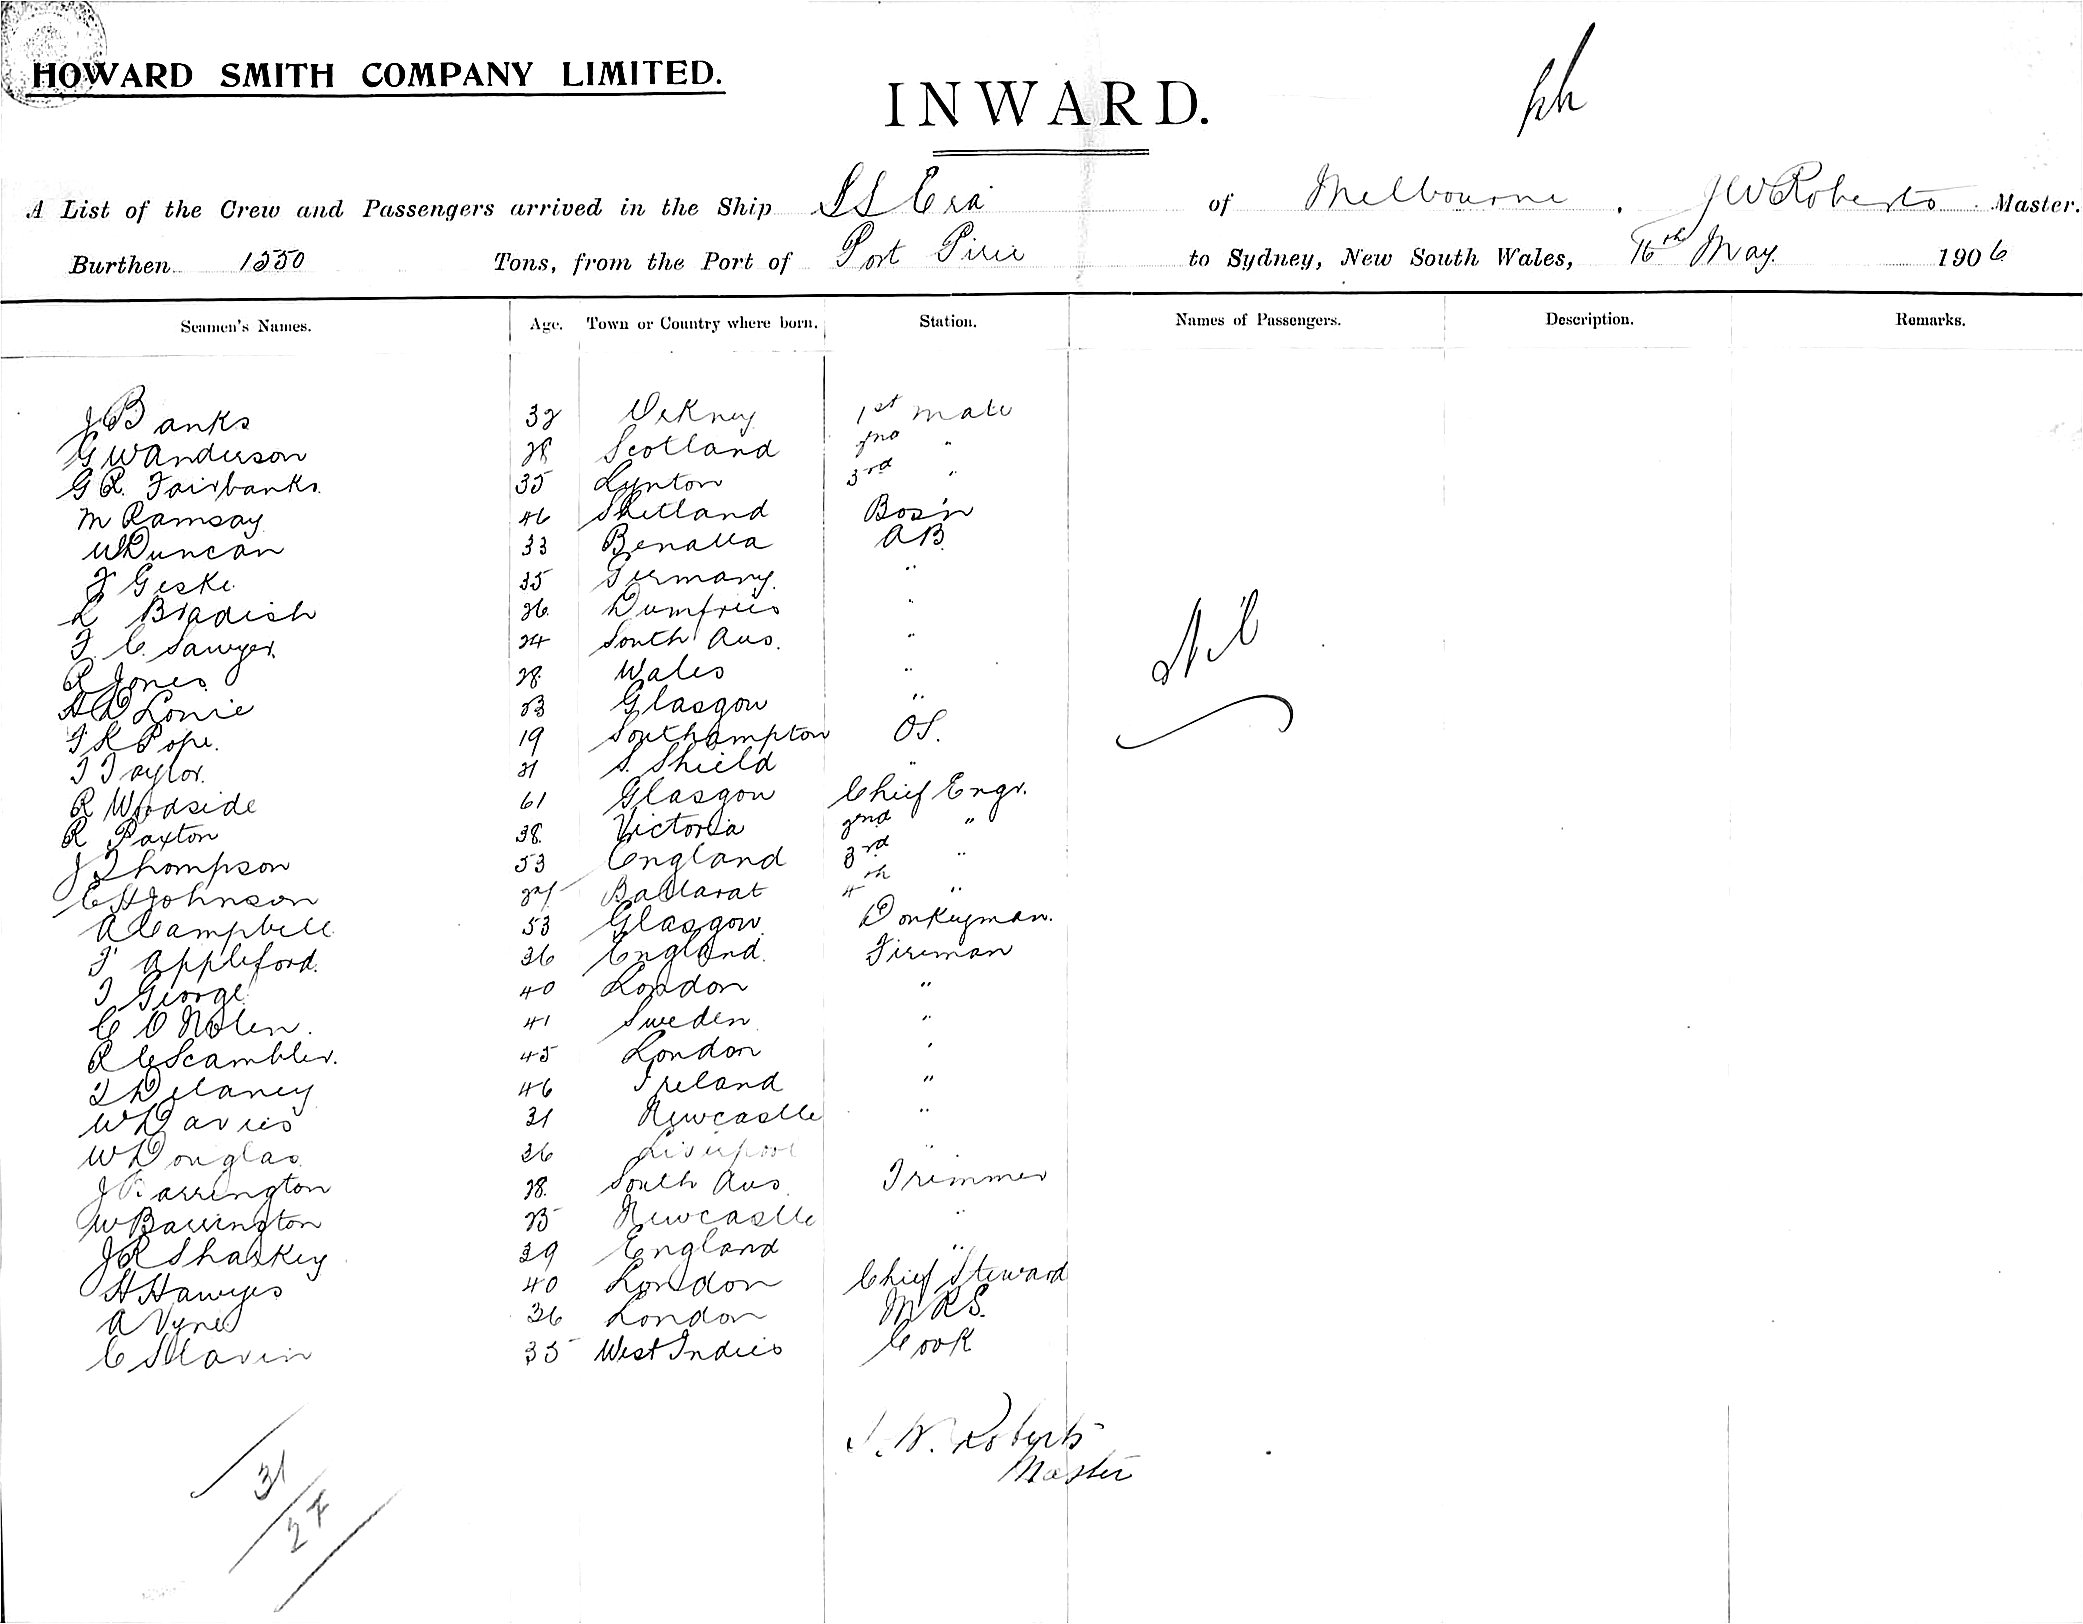 HOWARD SMITH COMPANY LIMITED.
INWARD.
A List of the Crew and Passengers arrived in the Ship SS Era of Melbourne, J W Roberts Master.
Burthen 1550 Tons, from the Port of Port Pirie to Sydney, New South Wales, 16th May 1906
Seamen's Names. Age. Town or Country where born. Station. Names of Passengers. Description. Remarks.
J Banks 32 Orkney 1st mate
G W Anderson 28 Scotland 2nd "
G R. Fairbanks. 35 Lynton 3rd "
M Ramsay 46 Shetland Bos'n
W Duncan 33 Benalla AB
F Geske. 35 Germany. "
L Bradish 26. Dumfries "
F. C. Sawyer. 24 South Aus. "
R Jones. 28. Wales "
A D Lonie 23 Glasgow "
F R Pope. 19 Southampton OS.
T Taylor. 21 S. Shield "
R Woodside 61 Glasgow Chief Engr.
R Paxton 38. Victoria 2nd "
J Thompson 53 England 3rd "
C H Johnson 27 Ballarat 4th "
A Campbell 53 Glasgow Donkeyman.
F Appleford. 36 England. Fireman
T George 40 London "
C O Nolen. 41 Sweden "
R C Scambler. 45 London "
T Delaney 46 Ireland "
W Davies 31 Newcastle "
W Douglas 36 Liverpool "
J Barrington 28. South Aus. Trimmer
W Barrington 25 Newcastle "
J R Sharkey 29 England "
H Hawyes 40 London Chief Steward
A Vyne 36 London M R S.
C Slavin 35 West Indies Cook
Nil
J. W. Roberts
Master
31
27